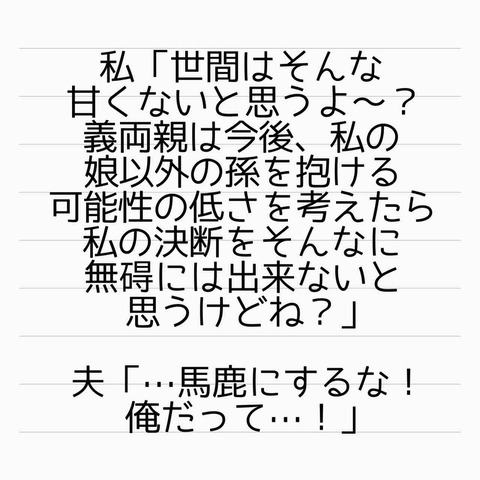 私「世間はそんな
甘くないと思うよ〜？
義両親は今後、私の
娘以外の孫を抱ける
可能性の低さを考えたら
私の決断をそんなに
無碍には出来ないと
思うけどね？」
夫「…馬鹿にするな！
俺だって…！」